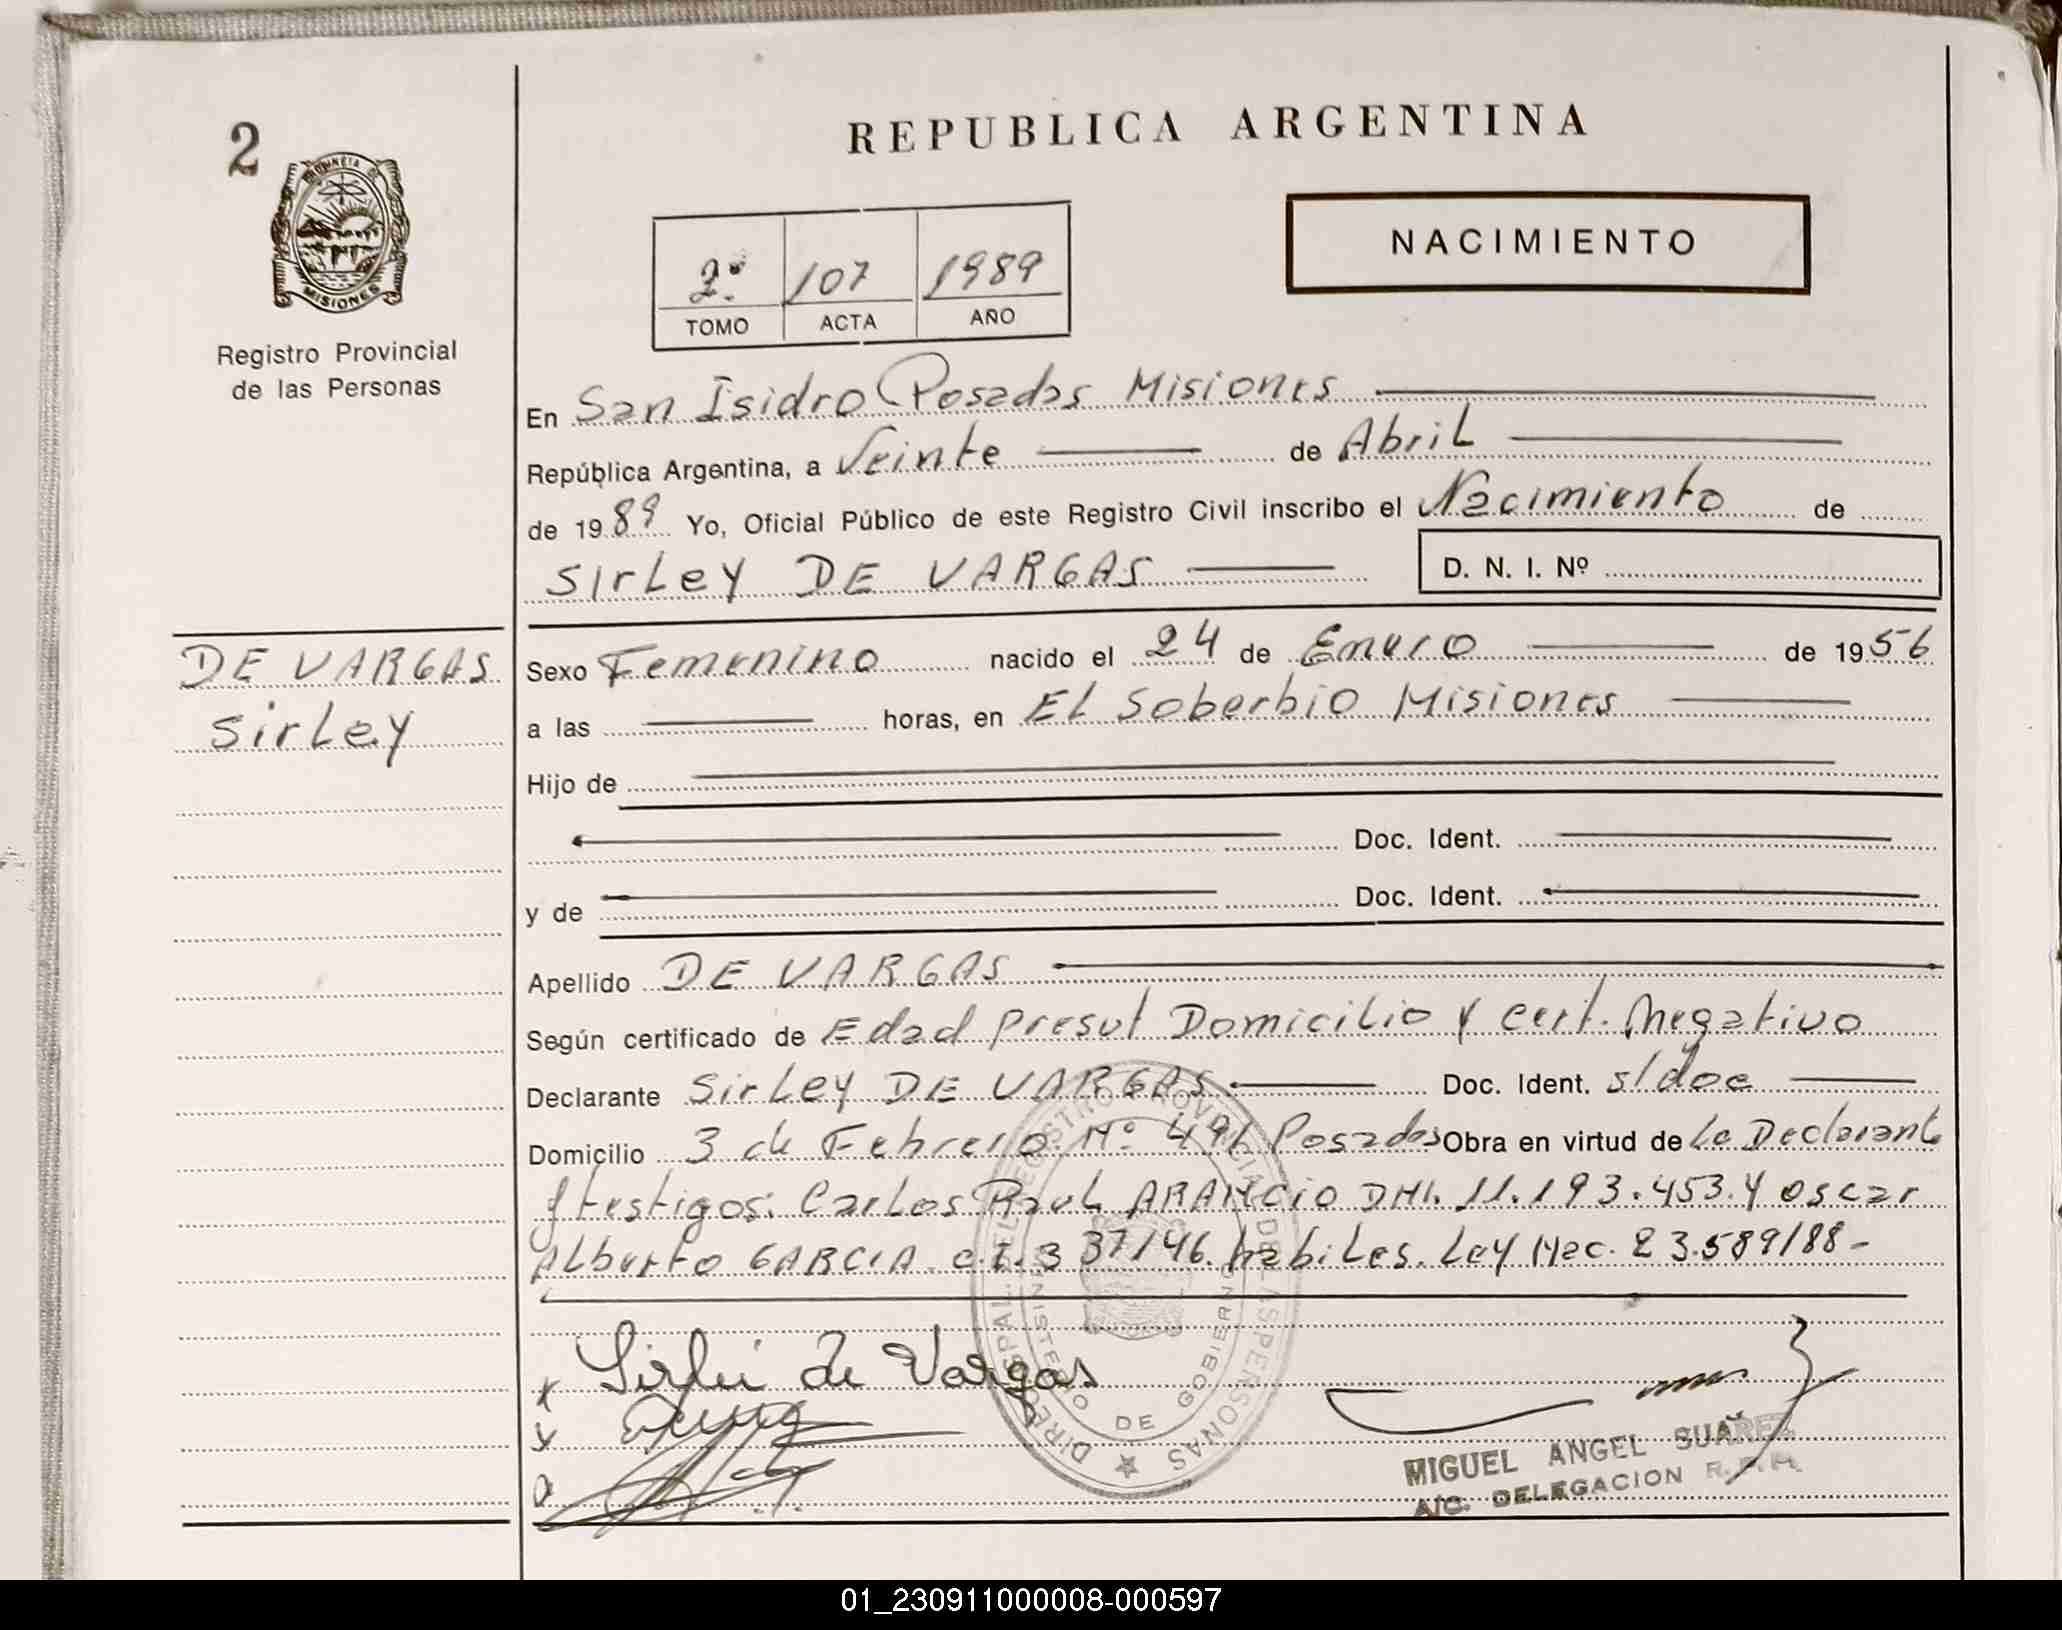 2
REPUBLICA ARGENTINA
PROVINCIA DE
MISIONES
Registro Provincial
de las Personas
2º 107 1989
TOMO ACTA AÑO
NACIMIENTO
En San Isidro Posadas Misiones
República Argentina, a Veinte de Abril
de 1989 Yo, Oficial Público de este Registro Civil inscribo el Nacimiento de
Sirley DE VARGAS D. N. I. Nº
DE VARGAS
Sirley
Sexo Femenino nacido el 24 de Enero de 1956
a las horas, en El Soberbio Misiones
Hijo de
Doc. Ident.
y de Doc. Ident.
Apellido DE VARGAS
Según certificado de Edad Presut Domicilio y Cert. Negativo
Declarante Sirley DE VARGAS Doc. Ident. s/doc
Domicilio 3 de Febrero Nº Posadas Obra en virtud de La Declarante
y testigos: Carlos Raul DNI. 11.193.453. y Oscar
Alberto GARCIA. C.I. habiles. Ley Nac. 23.589/88-
Sirlei de Vargas
MIGUEL ANGEL SUAREZ
A/C. DELEGACION R.P.P.
DIRE REGISTRO PROVINCIAL DE LAS PERSONAS
MINISTERIO DE GOBIERNO
01_230911000008-000597